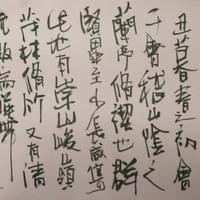 丑暮春之初會
于會稽山陰之
蘭亭脩禊也群
賢畢至少長咸集
此地有崇山峻嶺
茂林脩竹又有清